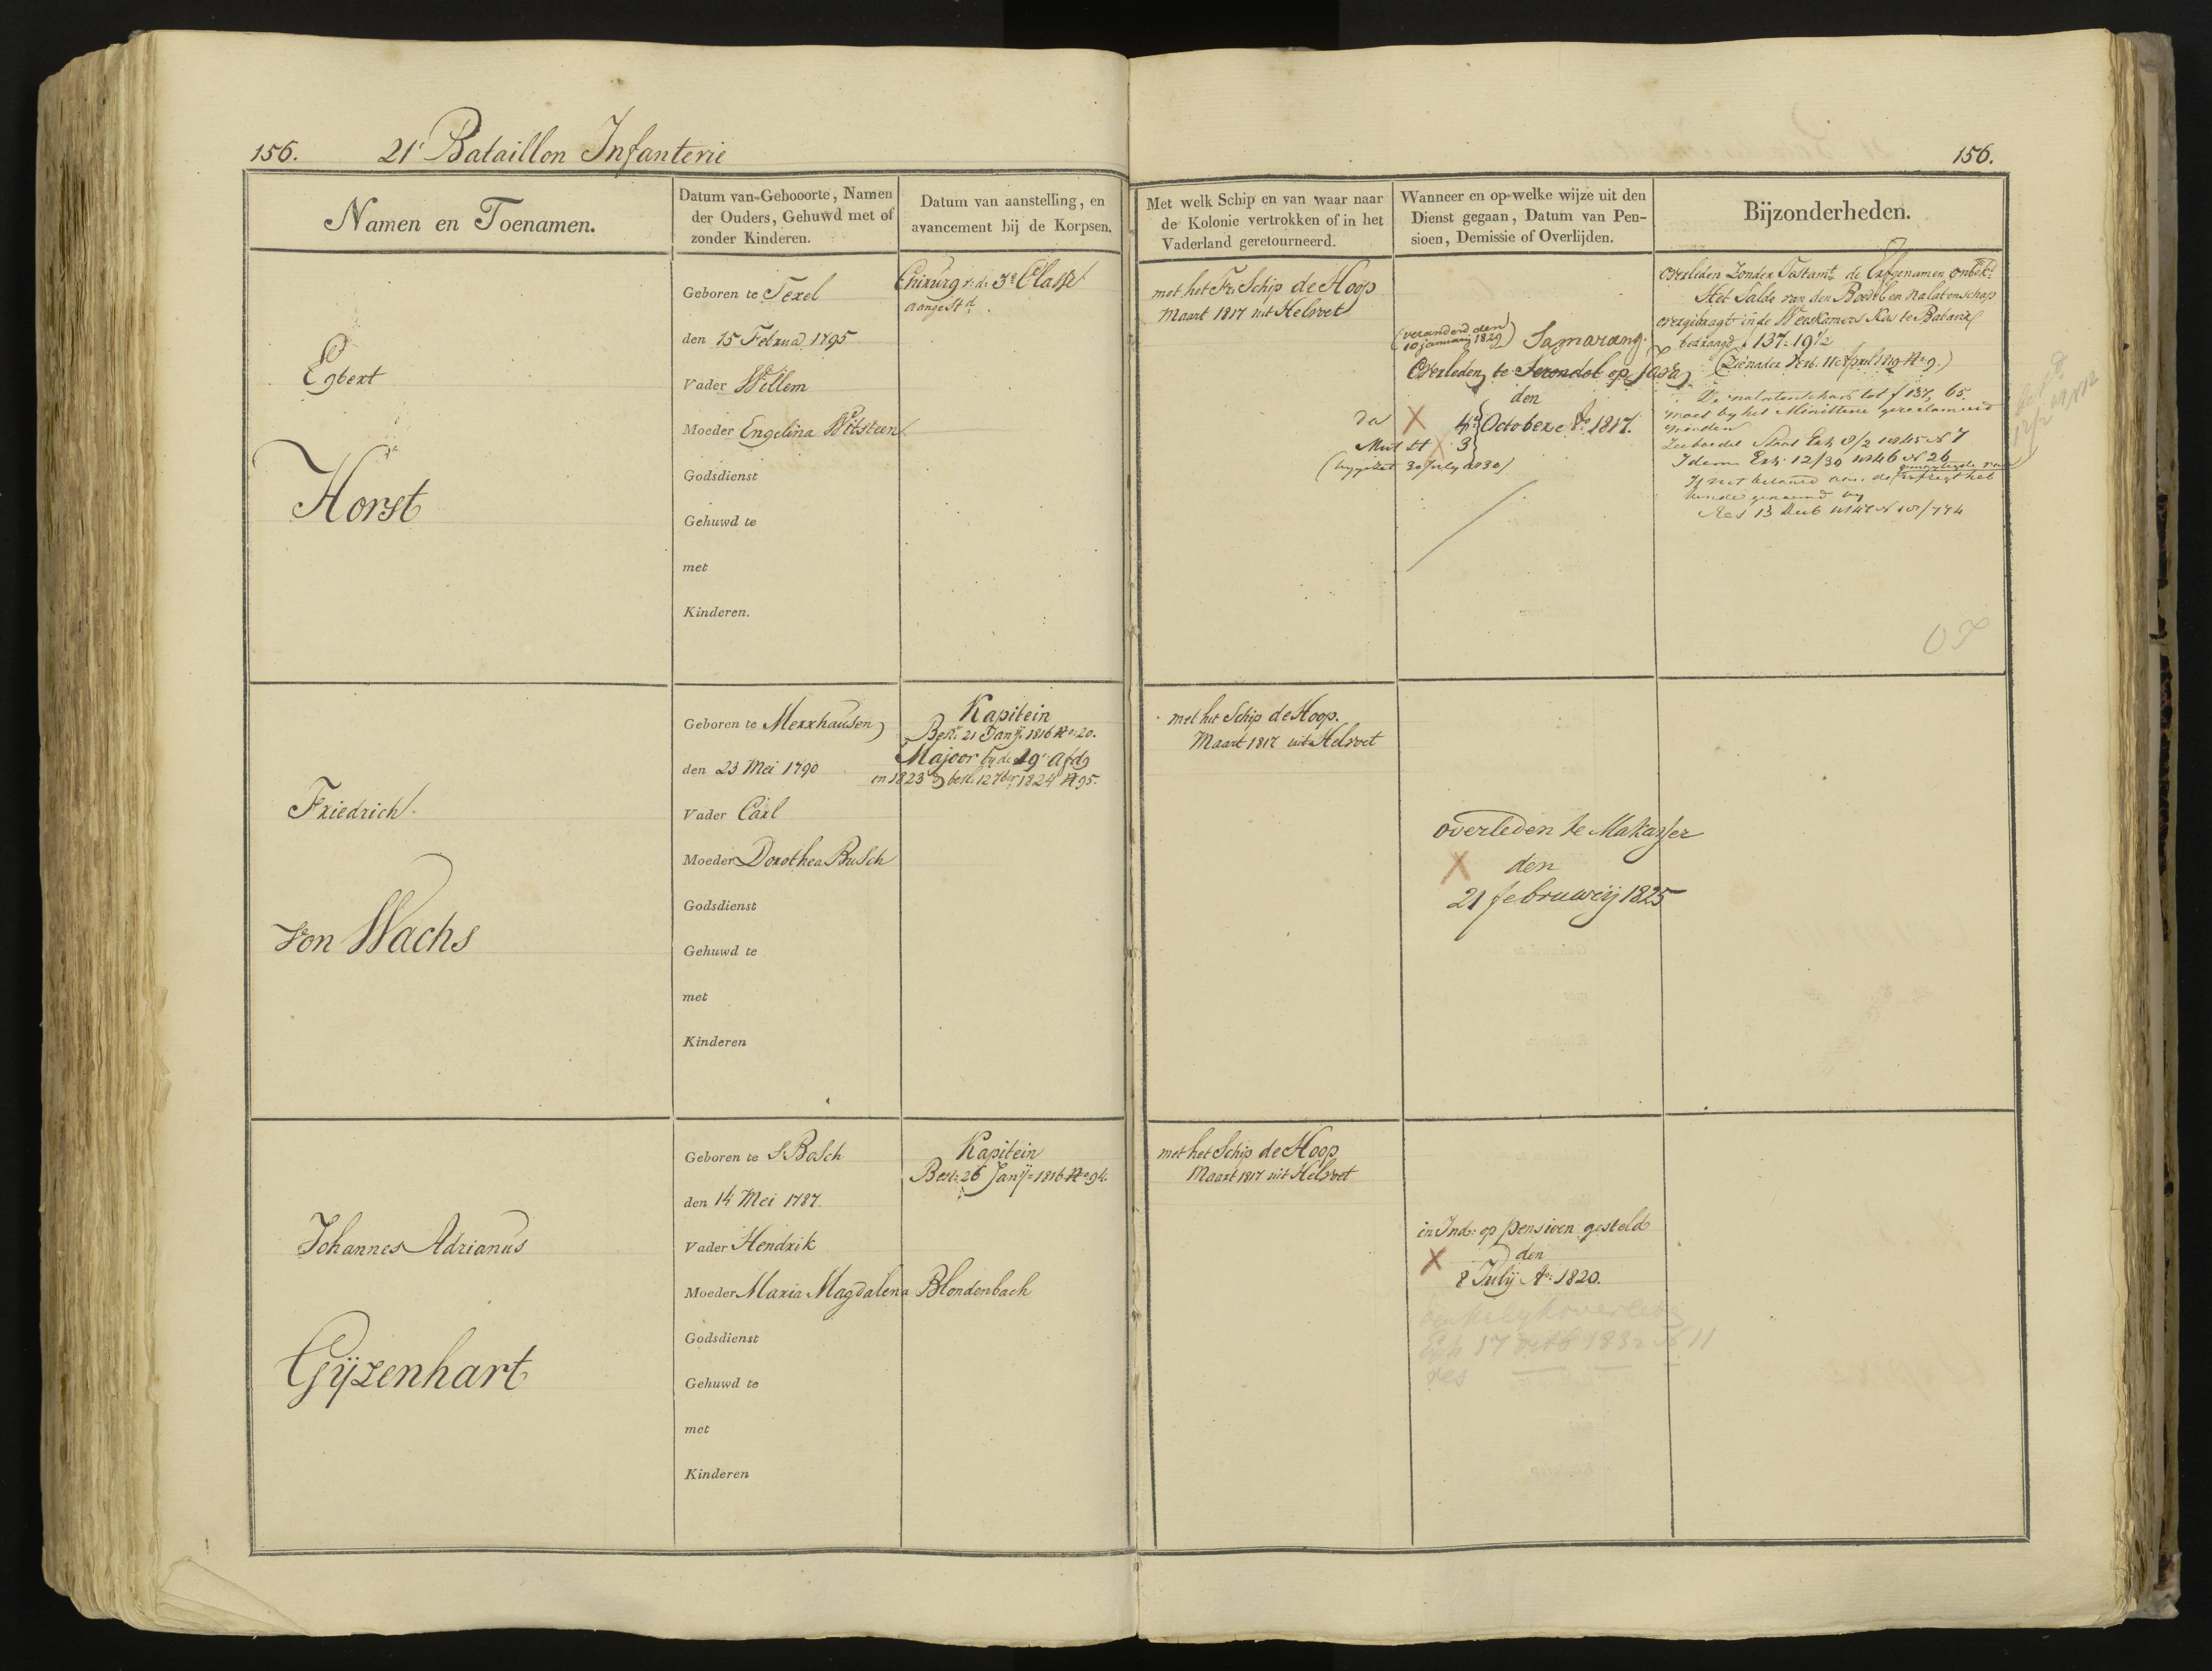 156. 21e Bataillon Infanterie
156.
Namen en Toenamen.
Datum van Gebooorte, Namen
der Ouders, Gehuwd met of
zonder Kinderen.
Datum van aanstelling, en
avancement bij de Korpsen.
Met welk Schip en van waar naar
de Kolonie vertrokken of in het
Vaderland geretourneerd.
Wanneer en op welke wijze uit den
Dienst gegaan, Datum van Pen-
sioen, Demissie of Overlijden.
Bijzonderheden.
Egbert
Horst
Geboren te Texel
den 15 Februa 1795
Vader Willem
Moeder Engelina Witsteen
Godsdienst
Gehuwd te
met
Kinderen.
Chirurg r. d. 3e Classe
aangestd.
met het Fr. Schip de Hoop
Maart 1817 uit Helvoet
(veranderd den
10 january 1829) Samarang.
Overleden te Serondol op Java
den
X 4e October Ao 1817.
X 3
30 July 1830)
Overleden zonder Testamt de Erfgenamen onbekt
Het Saldo van den Boedel en nalatenschap
overgebragt in de Weeskamers Kas te Batavia
bedraagd f 137:19 1/2
(Zie nader Verb. 11 April 1819 No 9.)
De nalatenschap tot f 137,65.
moet by het Ministerie gereclameerd
worden
Idem Exh. 12/30 1846 N 26
OI
Friedrich
von Wachs
Geboren te Merxhausen
den 23 Mei 1790
Vader Carl
Moeder Dorothea Busch
Godsdienst
Gehuwd te
met
Kinderen
Kapitein
Besl: 21 Janij. 1816 No. 20.
Majoor by de 19e Afdg
in 1823 besl. 12 7ber 1824 N 95.
met het Schip de Hoop.
Maart 1817 uit Helvoet
overleden te Makasser
X den
21 februarij 1825
Johannes Adrianus
Gijzenhart
Geboren te S Bosch
den 14 Mei 1787.
Vader Hendrik
Moeder Maria Magdalena Blondenbach
Godsdienst
Gehuwd te
met
Kinderen
Kapitein
Besl: 26 Janij= 1816 No. 94.
met het Schip de Hoop
Maart 1817 uit Helvoet
in Ind: op pensioen gesteld
X den
8 Julij Ao: 1820.